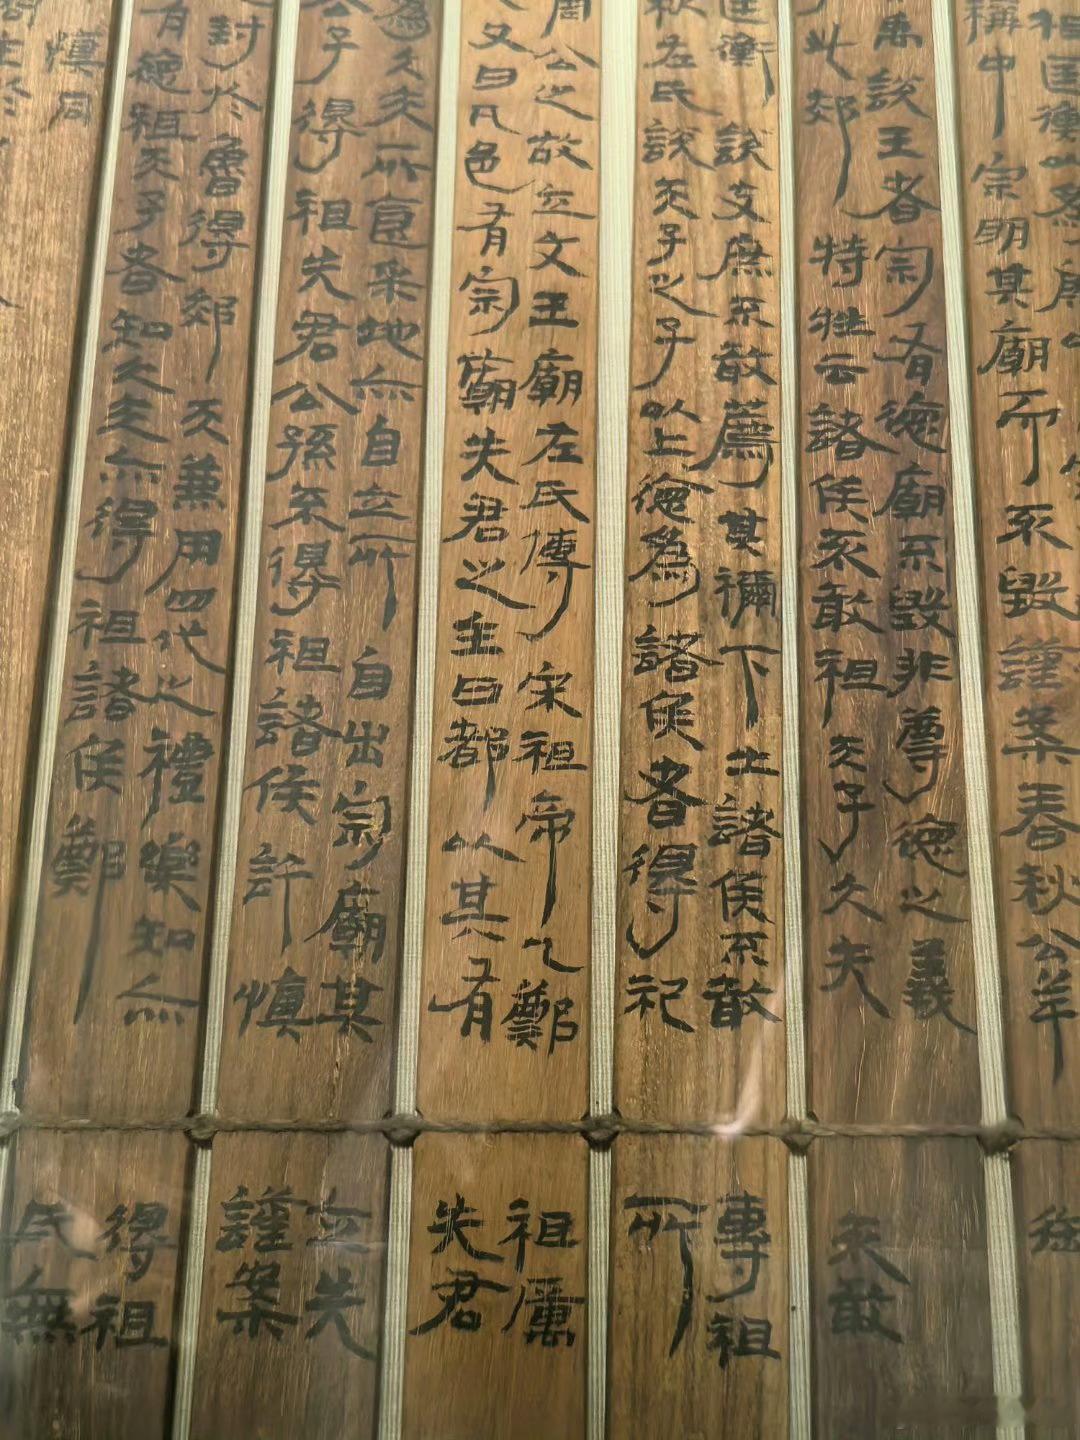 祖匡衡以為廟
稱中宗明其廟而不毀謹案春秋公羊御
禹說王者宗有德廟不毀非尊德之義
此郊特牲云諸侯不敢祖天子大夫不敢
匡衡說支庶不敢薦其禰下土諸侯不敢專祖
秋左氏說天子之子以上德為諸侯者得祀所
周公之故立文王廟左氏傳宋祖帝乙鄭祖厲
又曰凡邑有宗廟先君之主曰都以其有先君
為大夫所食采地亦自立所自出宗廟其立先
公子得祖先君公孫不得祖諸侯許慎謹案
封於魯得郊天兼用四代之禮樂知亦得祖
有德祖天子者知大夫亦得祖諸侯鄭氏無
慎同